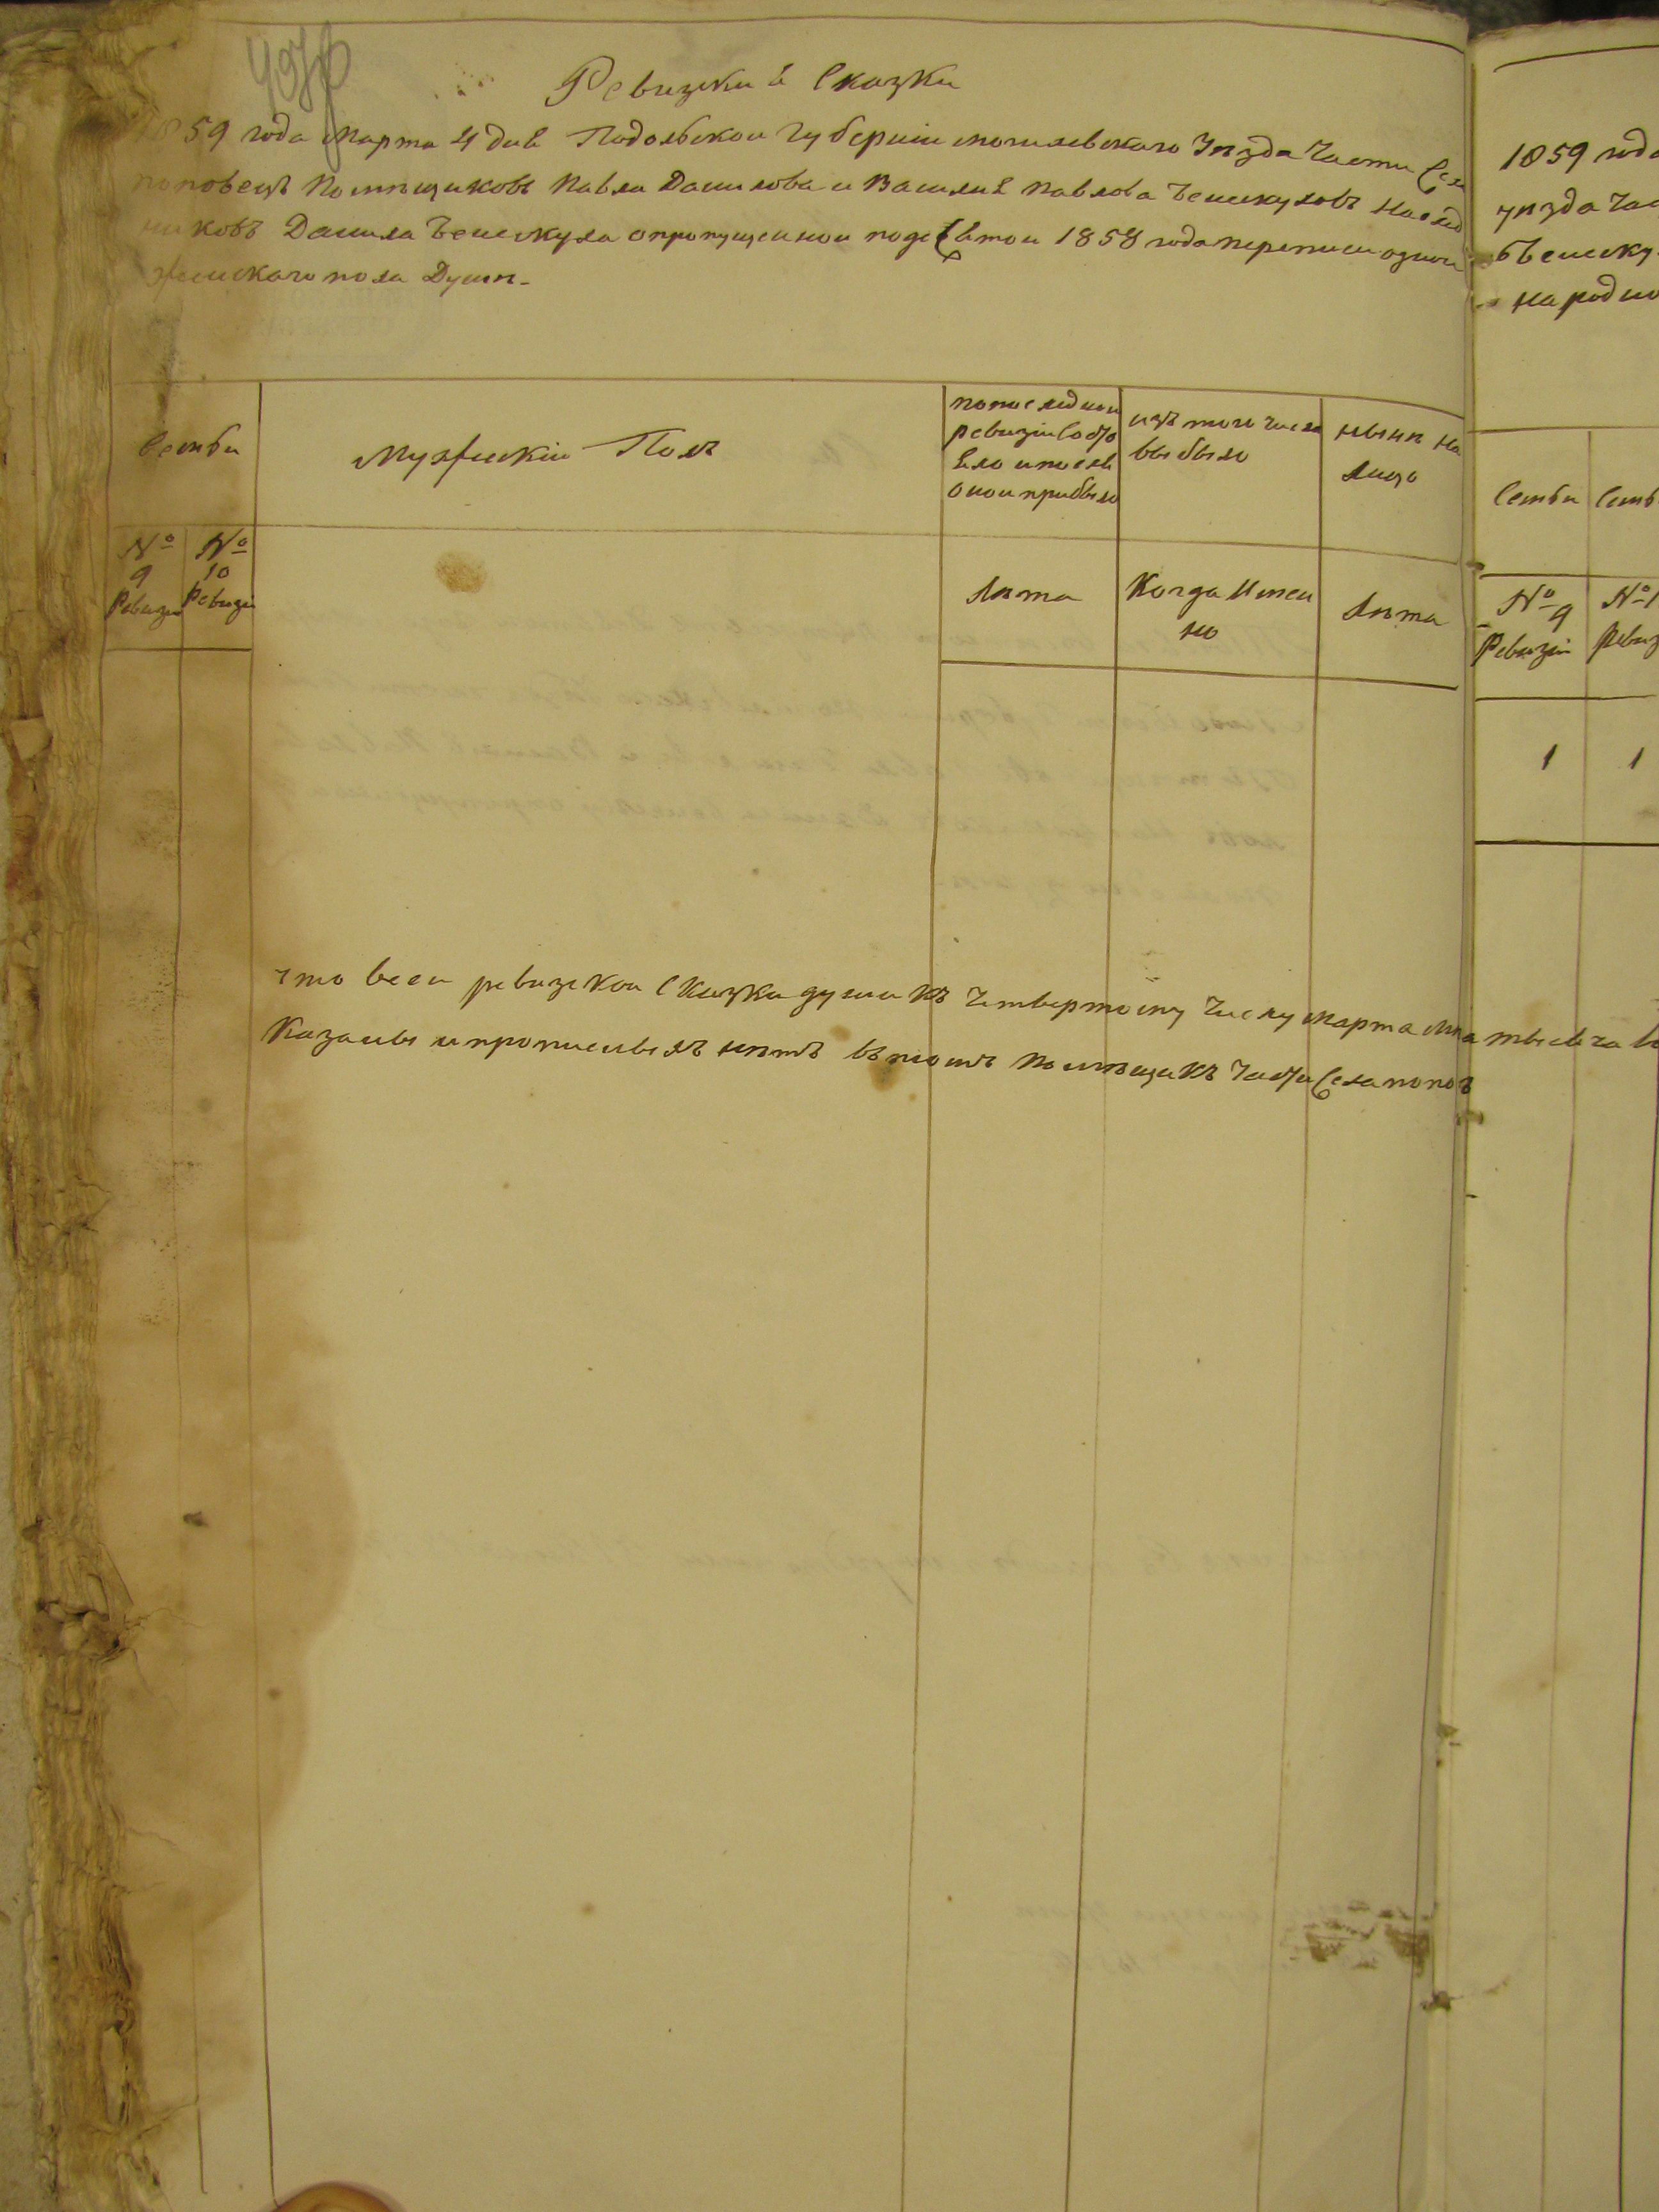 Ревизкиѣ Сказки
1859 года Марта 4 дня Подольской Губерніи могилевскаго Уѣзда части Села
поповецъ Помѣщиковъ Павла Данилова и Василия Павлова Бенскуловъ Наслѣд
никовъ Данила Бенескула о пропущенной подесѣтой 1858 года переписи одной
женскаго пола Души.
Семьи
Мужескій Полъ
попослѣдней
ревизіи состо
яло ипослѣ
оной прибыло
изъ того числа
выбыло
нынѣ на
лицо
№ 9 Ревизіи
№ 10 Ревизіи
Лѣта
Когда Имен
но
Лѣта
что всей ревизской Сказки души къ четвертому числу марта мца тысеча во
Казаны и прописныхъ нѣтъ въ томъ Помѣщикъ части Села попов
1859 года
уѣзда Час
Бенску
народно
Семьи
Семь
№ 9
Ревизіи
№ 1
Ревиз
1
1